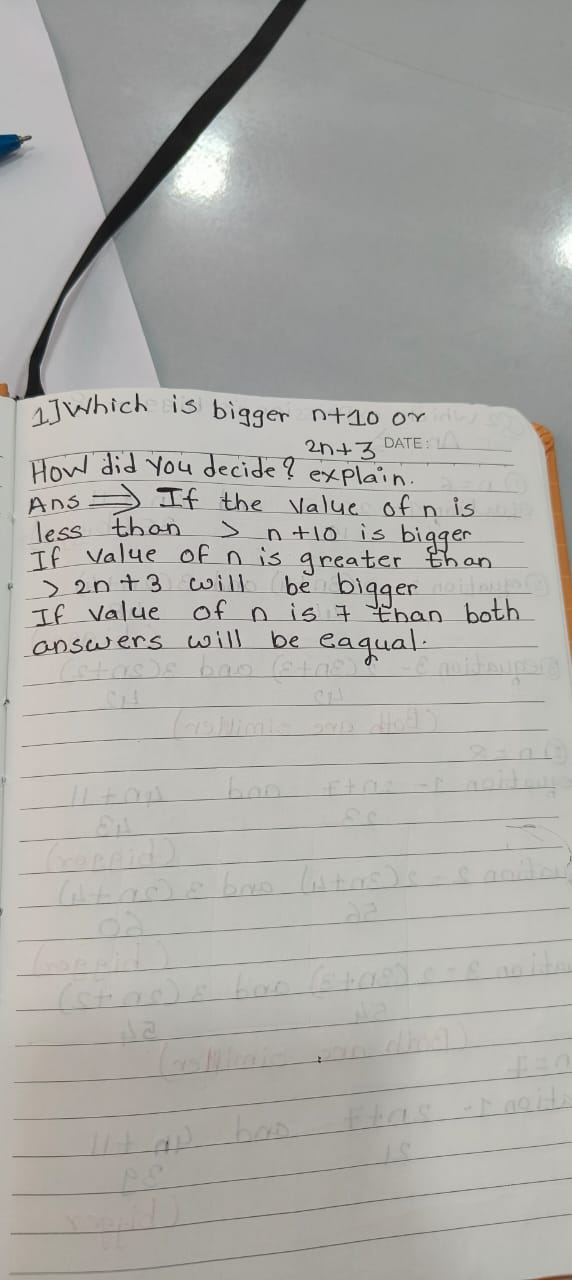 1] Which is bigger n+10 or
2n+3 DATE:
How did you decide? explain.
Ans ⇒ If the value of n is
less than > n+10 is bigger
If value of n is greater than
> 2n+3 will be bigger
If value of n is 7 than both
answers will be eaqual.